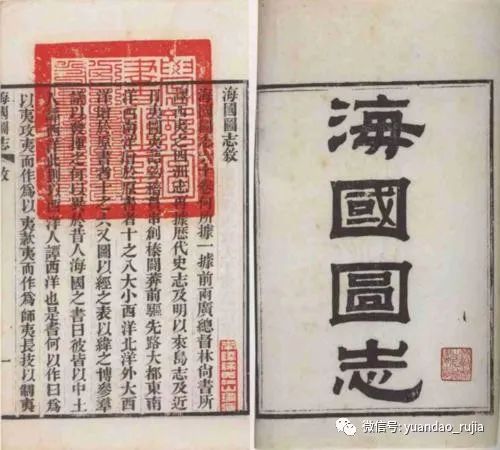 海國圖志
海國圖志敘
海國圖志六十卷何所據一據前兩廣總督林尚書所
譯西夷之四洲志再據歷代史志及明以來島志及近
日夷圖夷語鉤稽貫串創榛闢莽前驅先路大都東南
洋西南洋增於原書者十之八大小西洋北洋外大西
洋增於原書者十之六又圖以經之表以緯之博參羣
議以發揮之何以異於昔人海圖之書曰彼皆以中土
人譚西洋此則以西洋人譚西洋也是書何以作曰爲
以夷攻夷而作爲以夷款夷而作爲師夷長技以制夷
海國圖志 敘 一
微信号: yuandao_rujia